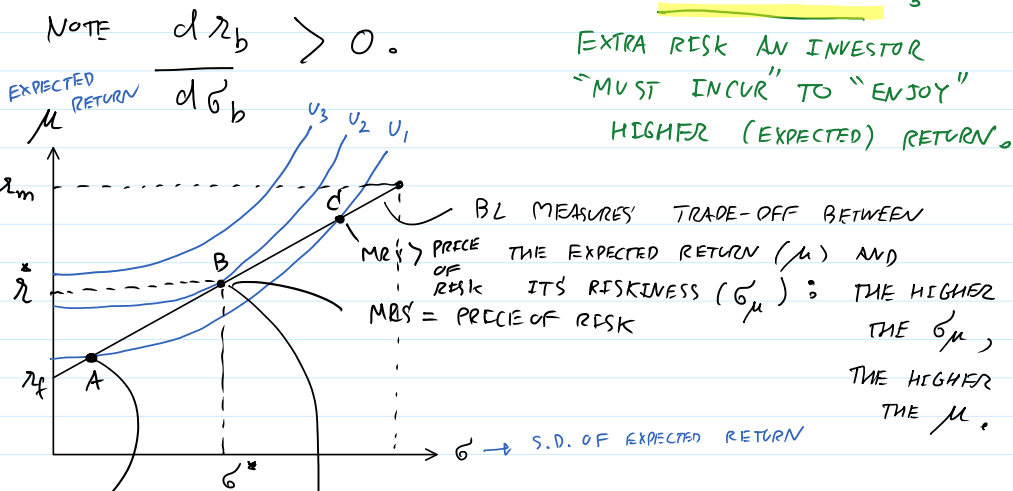 NOTE d r_b / d σ_b > 0.
EXTRA RISK AN INVESTOR
"MUST INCUR" TO "ENJOY"
HIGHER (EXPECTED) RETURN.
EXPECTED
RETURN
μ
U₃ U₂ U₁
r_m
C
BL MEASURES TRADE-OFF BETWEEN
MRS > PRICE OF RISK
THE EXPECTED RETURN (μ) AND
ITS RISKINESS (σ_μ) : THE HIGHER
THE σ_μ,
THE HIGHER
THE μ.
B
r*
MRS = PRICE OF RISK
A
r_f
σ → S.D. OF EXPECTED RETURN
σ*